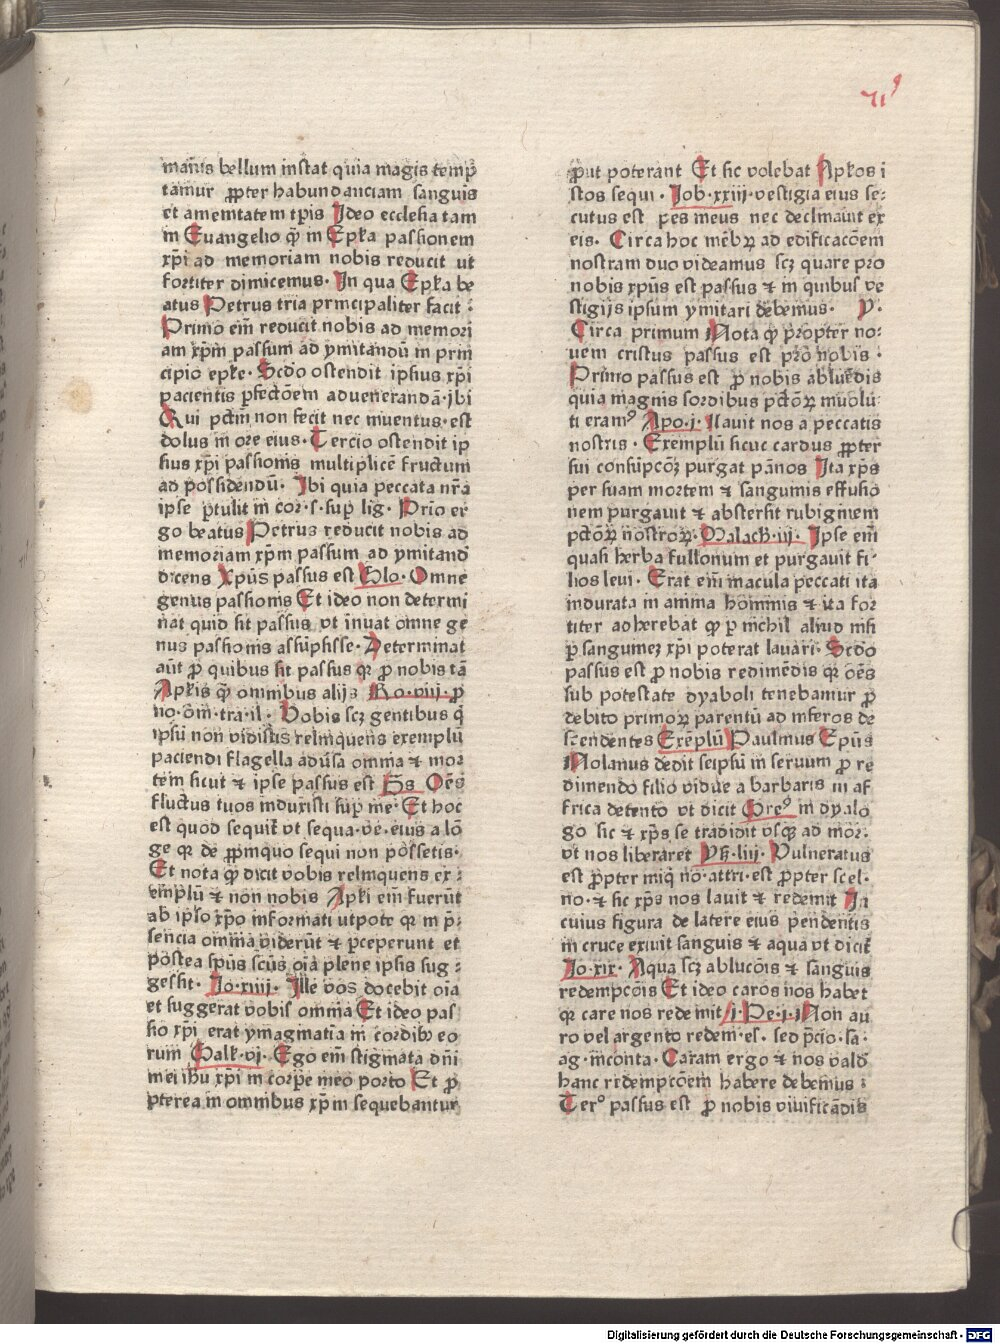 71⁹
manis bellum instat quia magis temp
tamur ꝓpter habundanciam sanguis
et amenitatem tp̄is Ideo ecclesia tam
in Euangelio q̄ in Ep̄la passionem
xp̄i ad memoriam nobis reducit ut
fortiter dimicemus. In qua Ep̄la be
atus Petrus tria principaliter facit :
Primo em̄ reducit nobis ad memori
am xp̄m passum ad ymitandū in prin
cipio ep̄le. Scd̄o ostendit ipsius xp̄i
pacientis ꝑfectōem ad venerandā. ibi
Qui pctm̄ non fecit nec inuentus. est
dolus in ore eius. Tercio ostendit ip
sius xp̄i passionis multiplicē fructum
ad possidendū. Ibi quia peccata nr̄a
ipse ꝑtulit in cor. s. sup̄ lig. Prio er
go beatus Petrus reducit nobis ad
memoriam xp̄m passum ad ymitand̄
dicens Xp̄us passus est Glo. Omne
genus passionis Et ideo non determi
nat quid sit passus, vt inuat omne ge
nus passionis assūpsisse. Determinat
aūt ꝓ quibus sit passus qꝛ ꝓ nobis tā
Ap̄lis q̄ omnibus alijs Ro. viij. ꝓ
no. om̄. tra. il. Vobis scꝫ gentibus q̄
ipsū non vidistis relinquens exemplū
paciendi flagella aduſa omnia & mor
tem sicut & ipse passus est Gs Oēs
fluctus tuos induxisti sup̄ me. Et hoc
est quod sequit̄ vt sequa. ve. eius a lō
ge qꝛ de ꝓpinquo sequi non possetis.
Et nota q̄ dicit vobis relinquens ex:
emplū & non nobis Ap̄li em̄ fuerūt
ab ipso xp̄o informati utpote qꝛ in p̄:
sencia omnia viderūt & ꝑceperunt et
postea spūs scūs oīa plene ipsis sug:
gessit. Jo. xiiij. Ille vos docebit oīa
et suggerat vobis omnia Et ideo pas
sio xp̄i erat ymaginatia in cordibꝫ eo
rum Gall. vj. Ego em̄ stigmata dn̄i
mei ihu xp̄i in corp̄e meo porto Et ꝓ
pterea in omnibus xp̄m sequebantur
ꝓut poterant Et sic volebat Ap̄los i
stos sequi. Job. xxiij. vestigia eius se:
cutus est pes meus nec declinauit ex
eis. Circa hoc mēbꝝ ad edificacōem
nostram duo videamus scꝫ quare pro
nobis xp̄us est passus & in quibus ve
stigijs ipsum ymitari debemus. P.
Circa primum Nota q̄ propter no:
uem cristus passus est pro nobis.
Primo passus est ꝓ nobis abluēdis
quia magnis sordibus pctōꝝ inuolu
ti eram⁹ Apo. j. Lauit nos a peccatis
nostris. Exemplū sicuc cardus ꝓpter
sui consūpcōꝫ purgat pānos Ita xp̄s
per suam mortem & sanguinis effusio
nem purgauit & abstersit rubiginem
pctōꝝ nostroꝝ. Malach. iij. Ipse em̄
quasi herba fullonum et purgauit fi:
lios leui. Erat em̄ macula peccati ita
indurata in anima hominis & ita for
titer adherebat qꝙ ꝑ nichil aliud nisi
ꝑ sanguineꝫ xp̄i poterat lauari. Scd̄o
passus est ꝓ nobis redimēdis qꝛ oēs
sub potestate dyaboli tenebamur ꝓ
debito primoꝝ parentū ad inferos de
scendentes Exēplū Paulinus Ep̄us
Nolanus dedit seipsū in seruum ꝓ re
dimendo filio vidue a barbaris in af
frica detento vt dicit Gre⁹ in dyalo
go sic & xp̄s se tradidit vsqꝫ ad mor.
vt nos liberaret Ys. liij. Vulneratus
est ꝓpter iniq̄ no. attri. est ꝓpter scel.
no. & sic xp̄s nos lauit & redemit In
cuius figura de latere eius pendentis
in cruce exiuit sanguis & aqua vt dicit̄
Jo. xix. Aqua scꝫ ablucōis & sanguis
redempcōis Et ideo caros nos habet
qꝛ care nos redemit j. Pe. j. Non au
ro vel argento redem. es. sed p̄cio. sa.
ag. inconta. Caram ergo & nos vald̄
hanc redempcōem habere debemus :
Ter⁹ passus est ꝓ nobis viuificādis
Digitalisierung gefördert durch die Deutsche Forschungsgemeinschaft - DFG